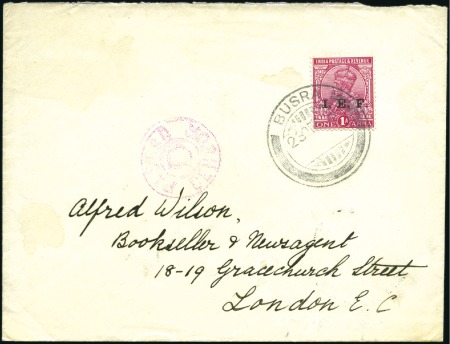 INDIA POSTAGE & REVENUE
I. E. F
ONE 1A ANNA
BUSRA
Alfred Wilson,
Bookseller & Newsagent
18-19 Gracechurch Street
London E. C